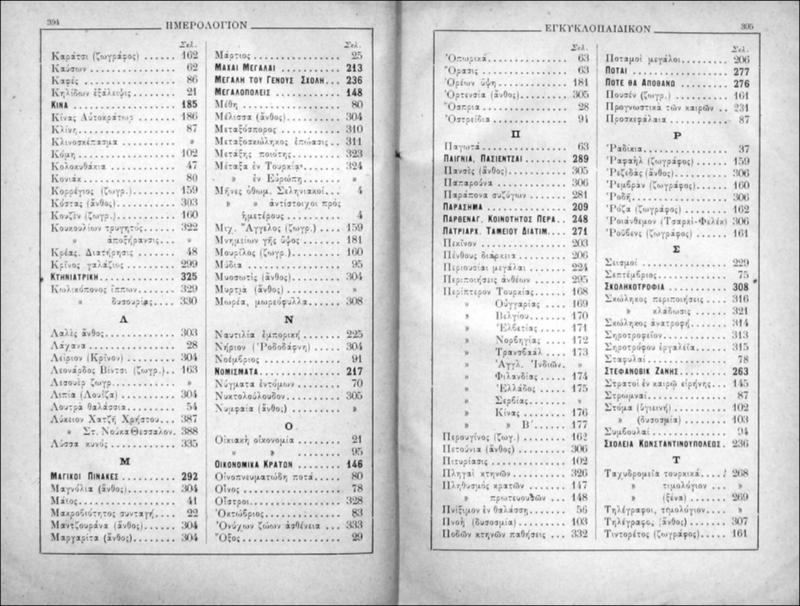 394
ΗΜΕΡΟΛΟΓΙΟΝ
Σελ.
Καράτσι (ζωγράφος) 162
Καύσων 62
Καφές 86
Κηλίδων ἐξάλειψις 21
ΚΙΝΑ 185
Κίνας Αὐτοκράτωρ 186
Κλίνη 87
Κλινοσκέπασμα »
Κόμη 102
Κολοκυθάκια 47
Κονιάκ 80
Κορρέγιος (ζωγρ.) 159
Κόστας (ἄνθος) 303
Κουζέν (ζωγρ.) 160
Κουκουλίων τρυγητός 322
» ἀποξήρανσις »
Κρέας. Διατήρησις 48
Κρῖνος γαλάζιος 299
ΚΤΗΝΙΑΤΡΙΚΗ 325
Κωλικόπονος ἵππων 329
» δυσουρίας 330
Λ
Λαλὲς ἄνθος 303
Λάχανα 28
Λείριον (Κρῖνον) 304
Λεονάρδος Βίντσι (ζωγρ.) 163
Λεσουὲρ ζωγρ. »
Λιπία (Λουΐζα) 304
Λουτρὰ θαλάσσια 54
Λύκειον Χατζῆ Χρήστου 387
» Στ. Νούκα Θεσσαλον. 388
Λύσσα κυνός 335
Μ
ΜΑΓΙΚΟΙ ΠΙΝΑΚΕΣ 292
Μαγνόλια (ἄνθος) 304
Μάϊος 41
Μακροβιότητος συνταγή 22
Μαντζουράνα (ἄνθος) 304
Μαργαρίτα (ἄνθος) 304
Σελ.
Μάρτιος 25
ΜΑΧΑΙ ΜΕΓΑΛΑΙ 213
ΜΕΓΑΛΗ ΤΟΥ ΓΕΝΟΥΣ ΣΧΟΛΗ 236
ΜΕΓΑΛΟΠΟΛΕΙΣ 148
Μέθη 80
Μέλισσα (ἄνθος) 304
Μεταξόσπορος 310
Μεταξοσκώληκος ἐπώασις 311
Μετάξης ποιότης 323
Μέταξα ἐν Τουρκίᾳ 324
» ἐν Εὐρώπῃ »
Μῆνες ὀθωμ. Σεληνιακοί 4
» » ἀντίστοιχοι πρὸς
ἡμετέρους 4
Μιχ. Ἄγγελος (ζωγρ.) 159
Μνημείων γῆς ὕψος 181
Μουρίλος (ζωγρ.) 160
Μύδια 95
Μυοσωτὶς (ἄνθος) 304
Μυρτιὰ (ἄνθος) »
Μωρέα, μωρεόφυλλα 308
Ν
Ναυτιλία ἐμπορική 225
Νήριον (Ῥοδοδάφνη) 304
Νοέμβριος 91
ΝΟΜΙΣΜΑΤΑ 217
Νύγματα ἐντόμων 70
Νυκτολούλουδον 305
Νυμφαία (ἄνθος) »
Ο
Οἰκιακὴ οἰκονομία 21
» » 95
ΟΙΚΟΝΟΜΙΚΑ ΚΡΑΤΩΝ 146
Οἰνοπνευματώδη ποτά 80
Οἶνος 78
Οἶστροι 328
Ὀκτώβριος 83
Ὀνύχων ζώων ἀσθένεια 333
Ὄξος 29
ΕΓΚΥΚΛΟΠΑΙΔΙΚΟΝ
395
Σελ.
Ὀπωρικά 63
Ὅρασις 63
Ὀρέων ὕψη 181
Ὀρτενσία (ἄνθος) 305
Ὄσπρια 28
Ὀστρείδια 91
Π
Παγωτά 63
ΠΑΙΓΝΙΑ, ΠΑΣΙΕΝΤΖΑΙ 289
Πανσὲς (ἄνθος) 305
Παπαρούνα 306
Παράπονα συζύγων 281
ΠΑΡΑΣΗΜΑ 209
ΠΑΡΘΕΝΑΓ. ΚΟΙΝΟΤΗΤΟΣ ΠΕΡΑ 248
ΠΑΤΡΙΑΡΧ. ΤΑΜΕΙΟΥ ΔΙΑΤΙΜ. 271
Πεκῖνον 203
Πένθους διάρκεια 206
Περιουσίαι μεγάλαι 224
Περιποιήσεις ἀνθέων 295
Περίπτερον Τουρκίας 168
» Οὑγγαρίας 169
» Βελγίου 170
» Ἑλβετίας 171
» Νορβηγίας 172
» Τρανσβαάλ 173
» Ἀγγλ. Ἰνδιῶν »
» Φιλανδίας 174
» Ἑλλάδος 175
» Σερβίας »
» Κίνας 176
» » Β΄ 177
Περουγῖνος (ζωγ.) 162
Πετούνια (ἄνθος) 306
Πιτυρίασις 102
Πληγαὶ κτηνῶν 326
Πληθυσμὸς κρατῶν 147
» πρωτευουσῶν 148
Πνίξιμον ἐν θαλάσσῃ 56
Πνοὴ (δυσοσμία) 103
Ποδῶν κτηνῶν παθήσεις 332
Σελ.
Ποταμοὶ μεγάλοι 206
ΠΟΤΑΙ 277
ΠΟΤΕ ΘΑ ΑΠΟΘΑΝΩ 276
Πουσὲν (ζωγρ.) 161
Προγνωστικὰ τῶν καιρῶν 231
Προσκεφάλαια 87
Ρ
Ῥαδίκια 37
Ῥαφαὴλ (ζωγράφος) 159
Ῥεζεδὰς (ἄνθος) 306
Ῥεμβρὰν (ζωγράφος) 160
Ῥοδῆ 306
Ῥόζα (ζωγράφος) 162
Ῥοιάνθεμον (Τσαρκὶ-Φελὲκ) 306
Ῥούβενς (ζωγράφος) 161
Σ
Σεισμοί 229
Σεπτέμβριος 75
ΣΚΩΛΗΚΟΤΡΟΦΙΑ 308
Σκώληκος περιποιήσεις 316
» κλάδωσις 321
Σκώληκος ἀνατροφή 314
Σηροτροφεῖον 313
Σηροτρόφου ἐργαλεῖα 315
Σταφυλαί 78
ΣΤΕΦΑΝΟΒΙΚ ΖΑΝΗΣ 263
Στρατοὶ ἐν καιρῷ εἰρήνης 145
Στρωμναί 87
Στόμα (ὑγιεινή) 102
» (δυσοσμία) 103
Συμβουλαί 94
ΣΧΟΛΕΙΑ ΚΩΝΣΤΑΝΤΙΝΟΥΠΟΛΕΩΣ 236
Τ
Ταχυδρομεῖα τουρκικά 268
» τιμολόγιον »
» (ξένα) 269
Τηλέγραφοι, τιμολόγιον »
Τηλέγραφο, (ἄνθος) 307
Τιντορέτος (ζωγράφος) 161